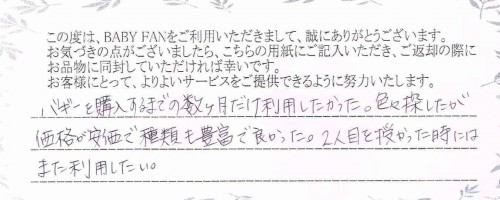 この度は、BABY FANをご利用いただきまして、誠にありがとうございます。
お気づきの点がございましたら、こちらの用紙にご記入いただき、ご返却の際に
お品物に同封していただければ幸いです。
お客様にとって、よりよいサービスをご提供できるように努力いたします。
バギーを購入するまでの数ヶ月だけ利用したかった。色々探したが
価格が安価で種類も豊富で良かった。2人目を授かった時には
また利用したい。